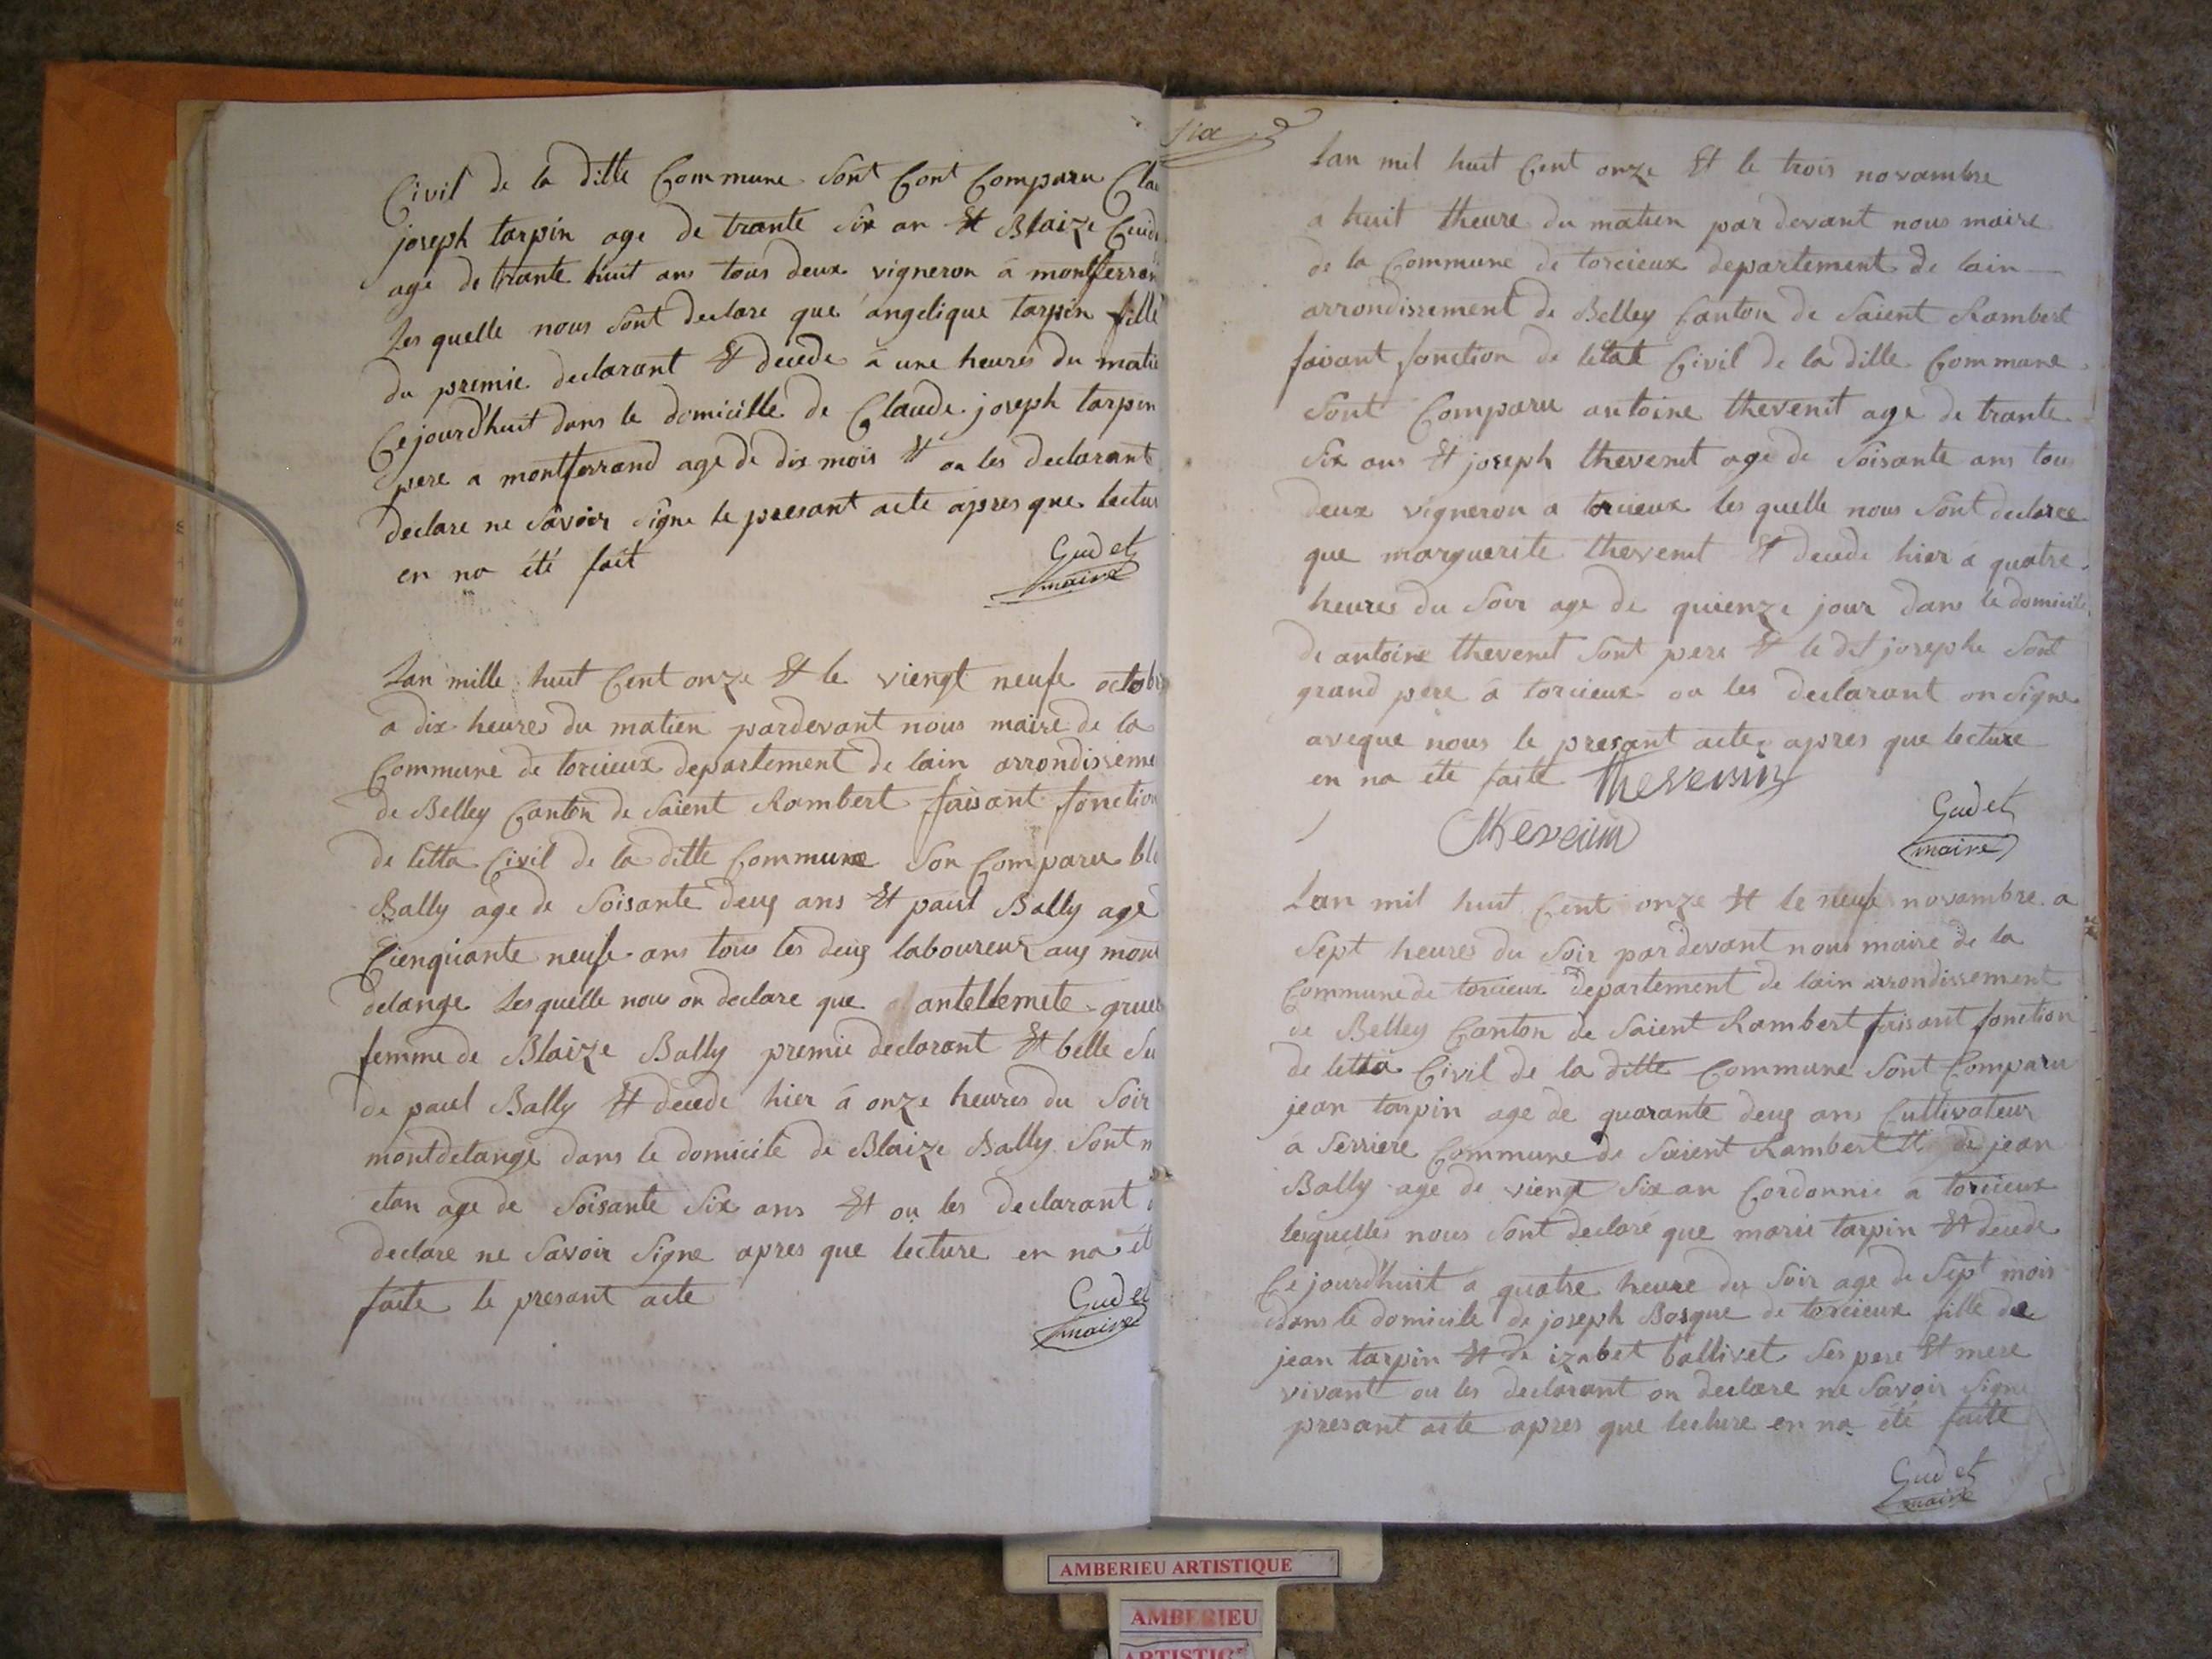 Civil de la ditte Commune sont Cont Comparu Clau
joseph tarpin age de trante six an Et Blaize
age de trante huit ans tous deux vigneron á montferran
les quelle nous sont declare que angelique tarpin fille
du premie declarant Et decede a une heures du matie
Cejourd'huit dans le domicille de Claude joseph tarpin
pere a montferrand age de dix mois Et on les declarant
declare ne savoir signe le presant acte apres que lectur
en na été fait
Gudet
maire
Lan mille huit Cent onze Et le viengt neufe octob
a dix heures du matien pardevant nous maire de la
Commune de torcieux departement de lain arrondisseme
de Belley Canton de saient Rambert faisant fonction
de letta Civil de la ditte Commune son Comparu bl
Bally age de soisante deug ans Et paul Bally age
Cienquante neufe ans tous les deug laboureur aug mont
delange lesquelle nous on declare que antellemete grue
femme de Blaize Bally premie declarant Et belle su
de paul Bally Et decede hier á onze heures du soir
montdelange dans le domicile de Blaize Bally sont
etan age de soisante six ans Et ou les declarant
declare ne savoir signe apres que lecture en na ét
faite le presant acte
Gudet
maire
six
Lan mil huit Cent onze Et le trois novambre
a huit theure du matien par devant nous maire
de la Commune de torcieux departement de lain
arrondissement de Belley Canton de saient Rambert
faisant fonction de letat Civil de la ditte Commune
sont Comparu antoine thevenit age de trante
six ans Et joseph thevenet age de soisante ans tou
deux vigneron a torcieux les quelle nous sont declaree
que marguerite thevenet Et decede hier a quatre
heures du soir age de quienze jour dans le domicile
de antoine thevenet sont pere Et le dit josephe sont
grand pere á torcieux ou les declarant on signe
aveque nous le presant acte apres que lecture
en na été faite thevenin
thevenin
Gudet
maire
Lan mil huit Cent onze Et le neufe novambre a
sept heures du soir pardevant nous maire de la
Commune de torcieux departement de lain arrondissement
de Belley Canton de saient Rambert faisant fonction
de letta Civil de la ditte Commune sont Comparu
jean tarpin age de quarante deug ans Cultivateur
a serriere Commune de saient Rambert Et de jean
Bally age de viengt six an Cordonnie a torcieux
lesquelles nous sont declaré que marie tarpin Et decede
Ce jourd'huit a quatre heure du soir age de sept mois
dans le domicile de joseph Bosque de torcieux fille de
jean tarpin Et de izabet ballivet ses pere Et mere
vivant ou les declarant on declare ne savoir signe
presant acte apres que lecture en na été faite
Gudet
maire
AMBERIEU ARTISTIQUE
AMBERIEU